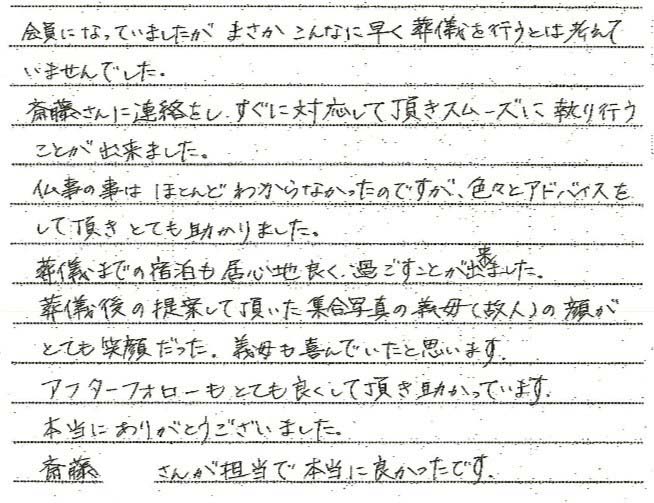 会員になっていましたが まさか こんなに早く 葬儀を行うとは考えて
いませんでした。
斎藤さんに連絡をし、すぐに対応して頂きスムーズに 執り行う
ことが出来ました。
仏事の事は ほとんど わからなかったのですが、色々とアドバイスを
して頂き とても助かりました。
葬儀までの宿泊も 居心地良く、過ごすことが出来ました。
葬儀後の提案して頂いた 集合写真の義母(故人)の顔が
とても笑顔だった。義母も喜んでいたと思います。
アフターフォローも とても良くして頂き助かっています。
本当に ありがとうございました。
斎藤 さんが担当で 本当に良かったです。